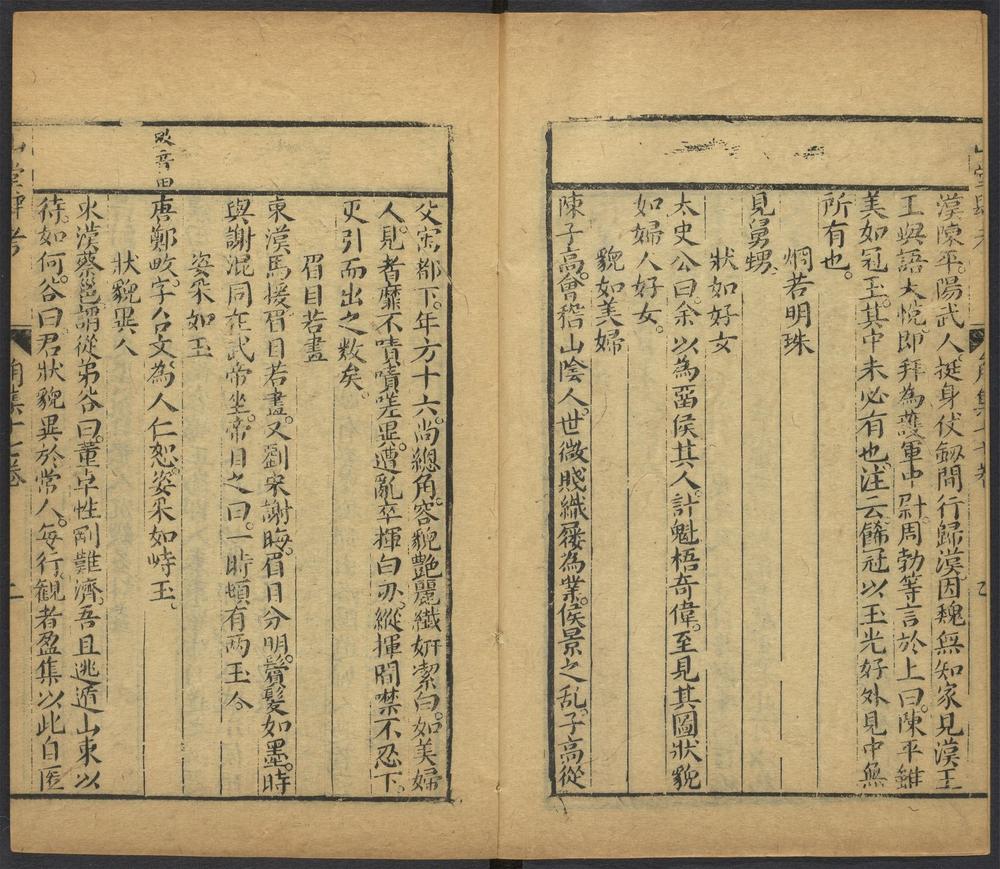 漢陳平。陽武人。挺身仗劔間行歸漢因魏無知家見漢王
王與語大悅。即拜為護軍中尉。周勃等言於上曰。陳平雖
美如冠玉。其中未必有也。注云餙冠以玉光好外見中無
所有也。
烱若明珠
見舅甥。
狀如好女
太史公曰。余以為畱侯其人。計魁梧奇偉。至見其圖狀貌
如婦人好女。
貌如美婦
陳子高。會稽山陰人。世微賤織屨為業。侯景之乱。子高從
父寓都下。年方十六。尚總角。容貌艷麗纖姸潔白。如美婦
人。見者靡不嘖嘖嗟異。遭亂卒揮白刃。縱揮間噤不忍下。
更引而出之数矣。
眉目若畫
東漢馬援眉目若畫。又劉宋謝晦。眉目分明。鬢髮如墨。時
與謝混同在武帝坐。帝目之曰。一時頓有两玉人
姿采如玉
畋音田
唐鄭畋。字台文。為人仁恕。姿采如峙玉。
狀貌異人
東漢蔡邕。謂從弟谷曰。董卓性剛難濟。吾且逃遁山東以
待。如何。谷曰。君狀貌異於常人。每行。觀者盈集以此自匿
山堂肆考
角集十七卷
二